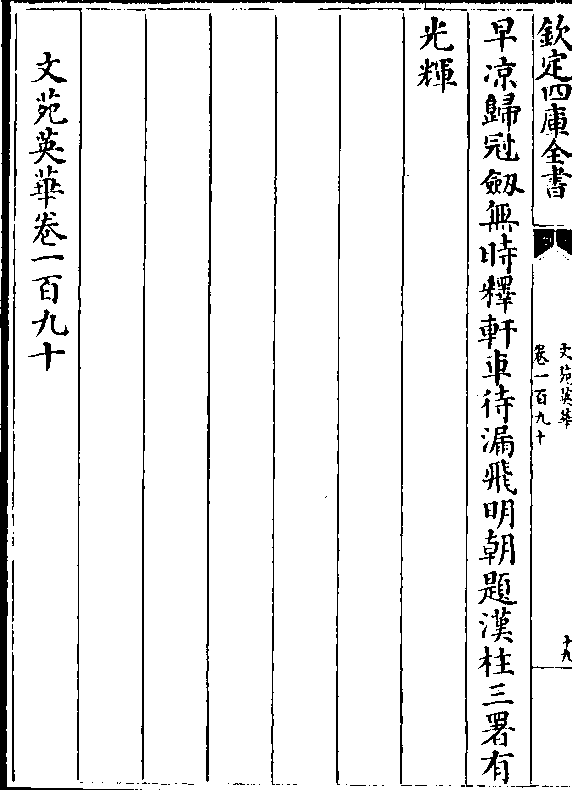 欽定四庫全書
文苑英華
卷一百九十
十九
早凉歸冠劔無時釋軒車待漏飛明朝題漢柱三署有
光輝
文苑英華卷一百九十